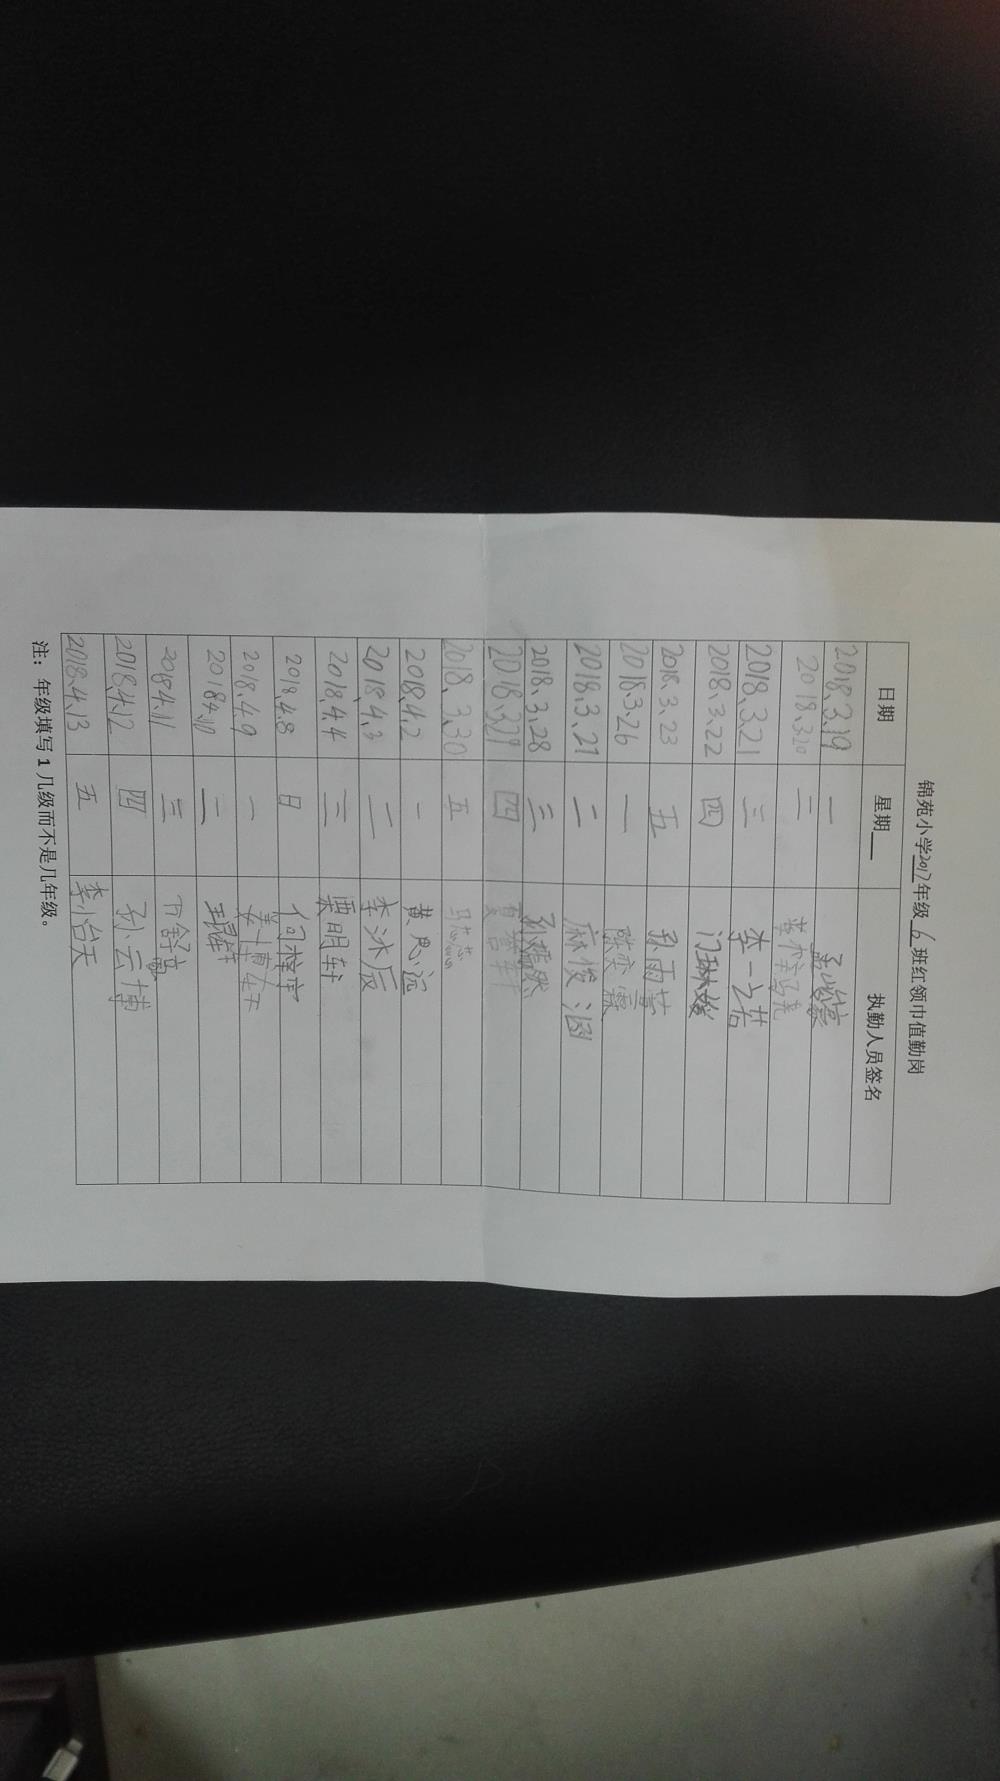 锦苑小学2017年级6班红领巾值勤岗
日期 星期 执勤人员签名
2018.3.19 一
2018.3.20 二
2018.3.21 三 李一诺
2018.3.22 四 门琳嫒
2018.3.23 五 孙雨萱
2018.3.26 一 陈奕霖
2018.3.21 二 麻俊涵
2018.3.28 三 孙嫣然
2018.3.29 四
2018.3.30 五 马芯蕊
2018.4.2 一 黄思远
2018.4.3 二 李沐辰
2018.4.4 三 栗明轩
2018.4.8 日 何梓宁
2018.4.9 一
2018.4.10 二
2018.4.11 三
2018.4.12 四 孙云博
2018.4.13 五 李怡天
注：年级填写1几级而不是几年级。